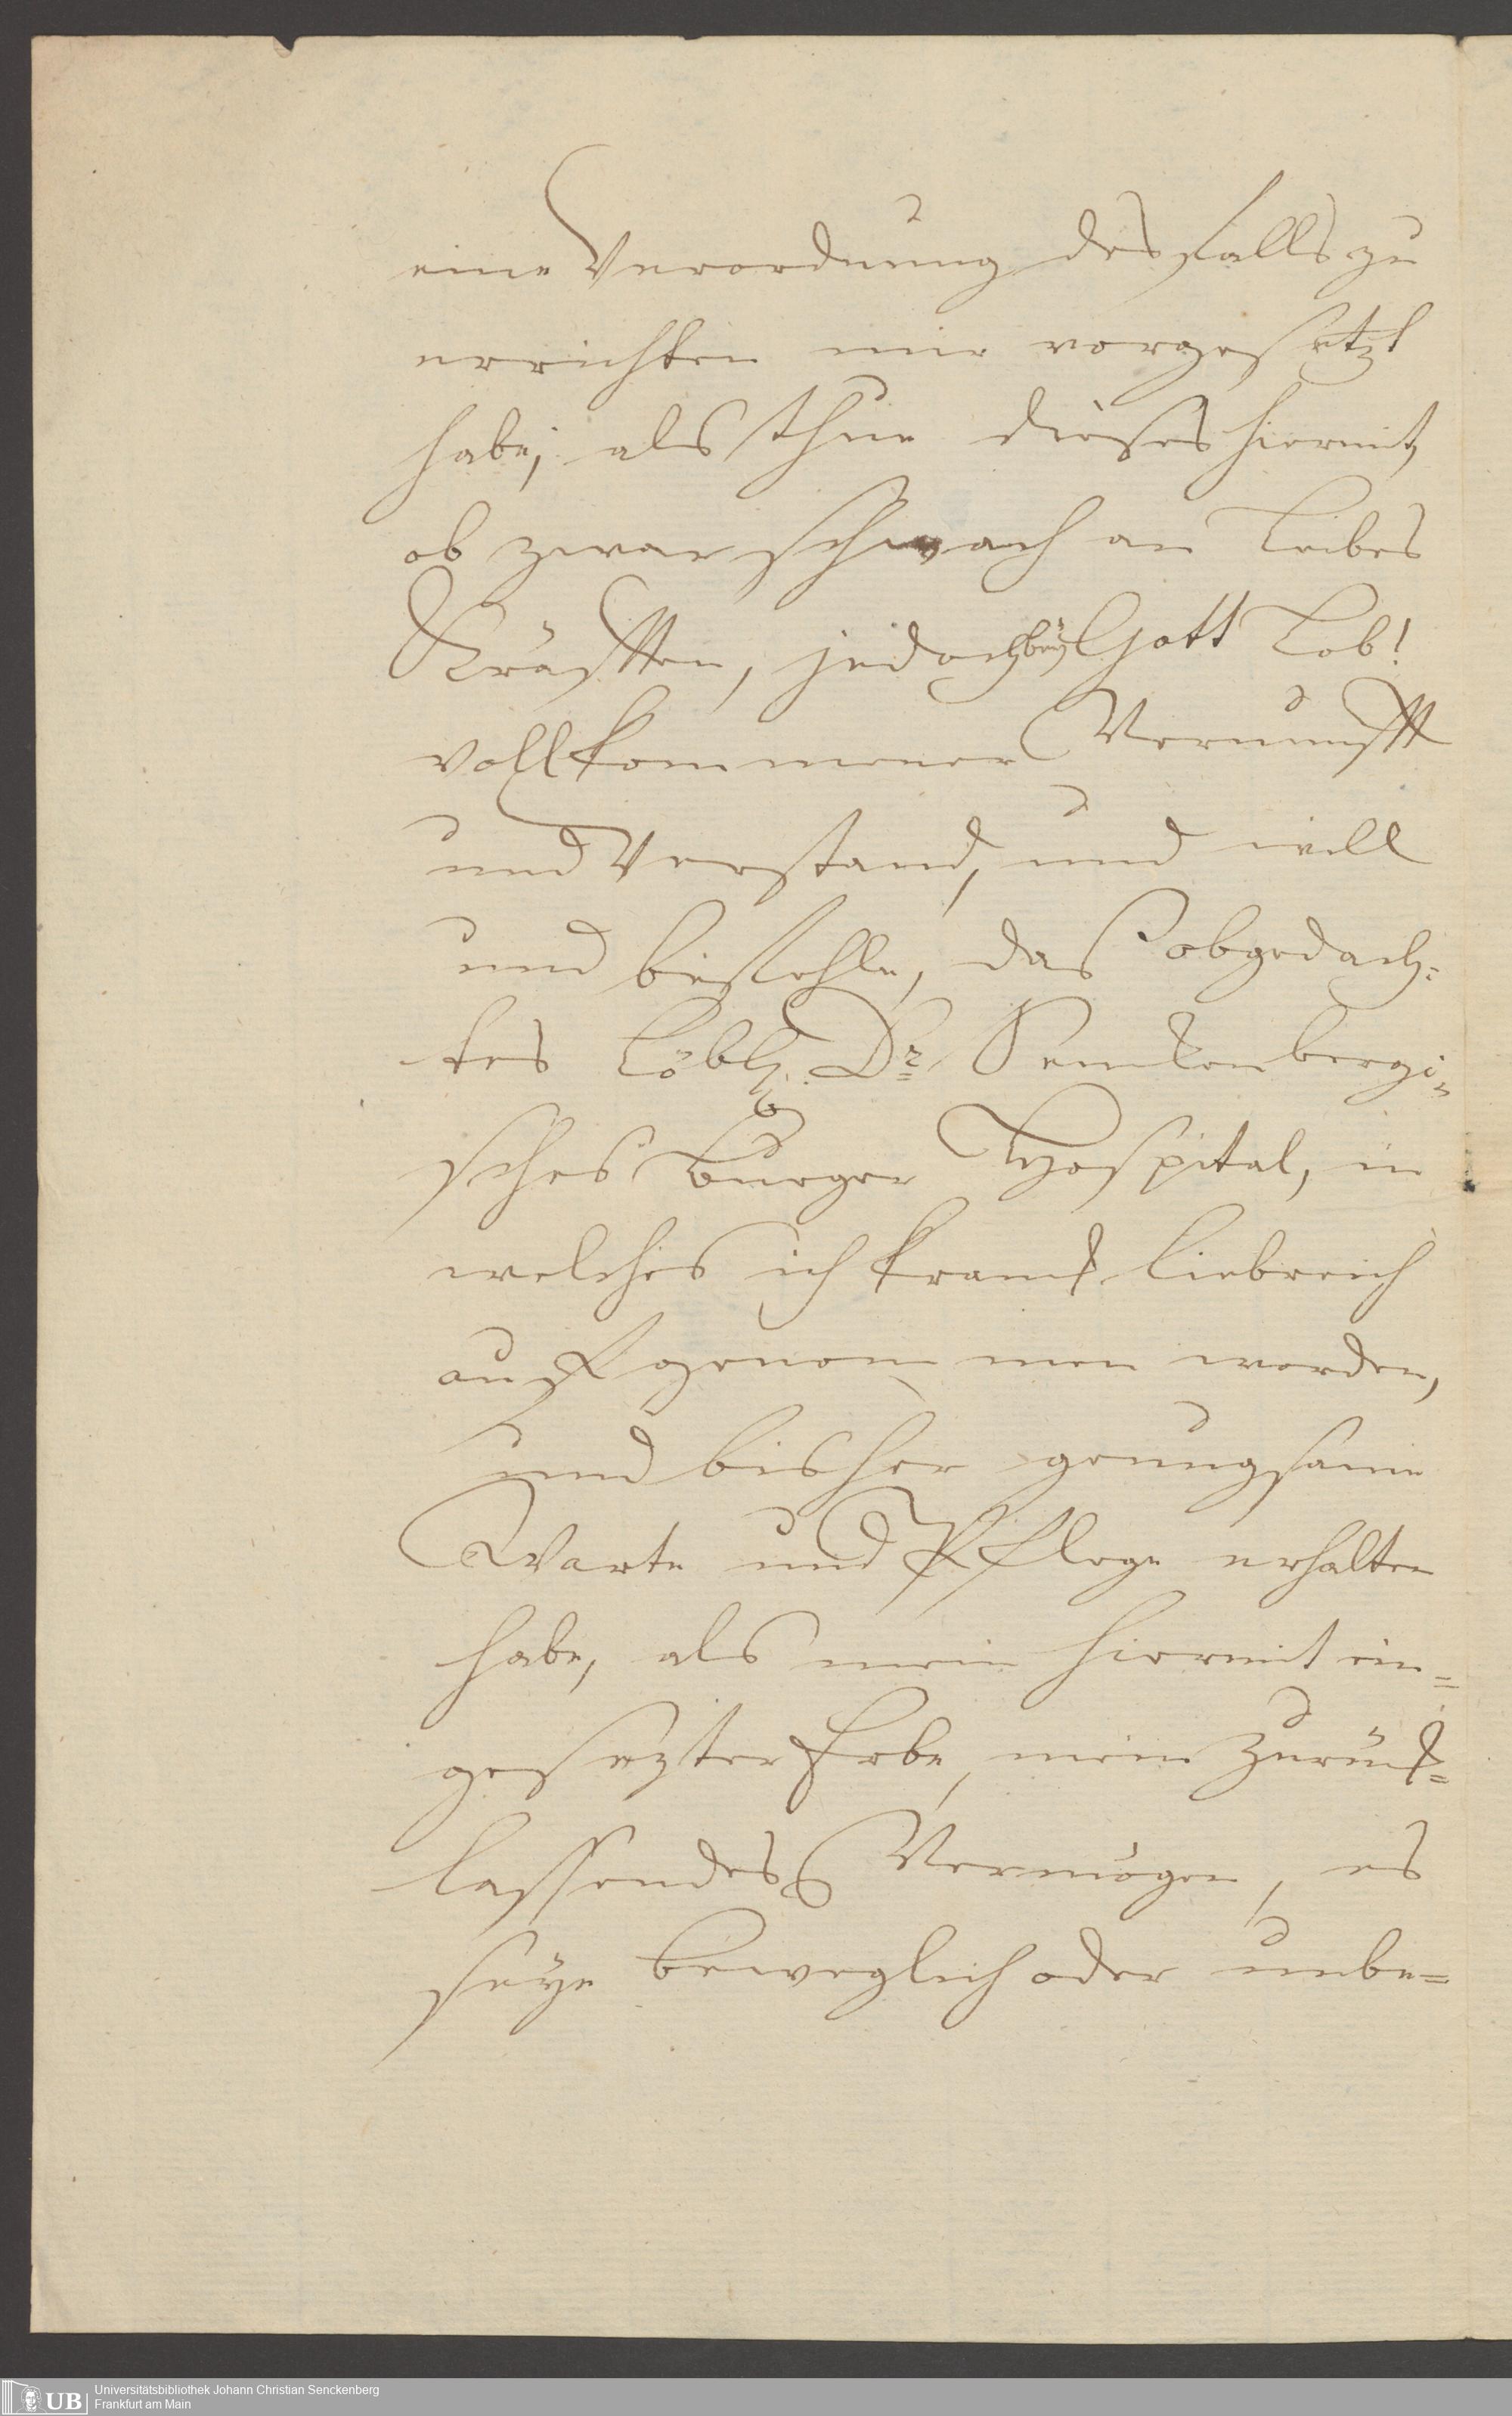 eine Verordnung desfalls zu
errichten mir vorgesetzt
habe, als thue dieses hiermit,
ob zwar schwach an Leibes
Kräfften, jedoch bey Gott Lob!
vollkommener Vernunfft
und Verstand, und will
und befehle, das obgedach=
tes Löbl. Dr. Senckenbergi=
sches Burger Hospital, in
welches ich kranck liebreich
aufgenommen worden,
und bisher genungsame
Warte und Pflege erhalten
habe, als mein hiermit ein=
gesezter Erbe, mein zurück=
lassendes Vermögen, es
seye beweglich oder unbe=
UB Universitätsbibliothek Johann Christian Senckenberg
Frankfurt am Main